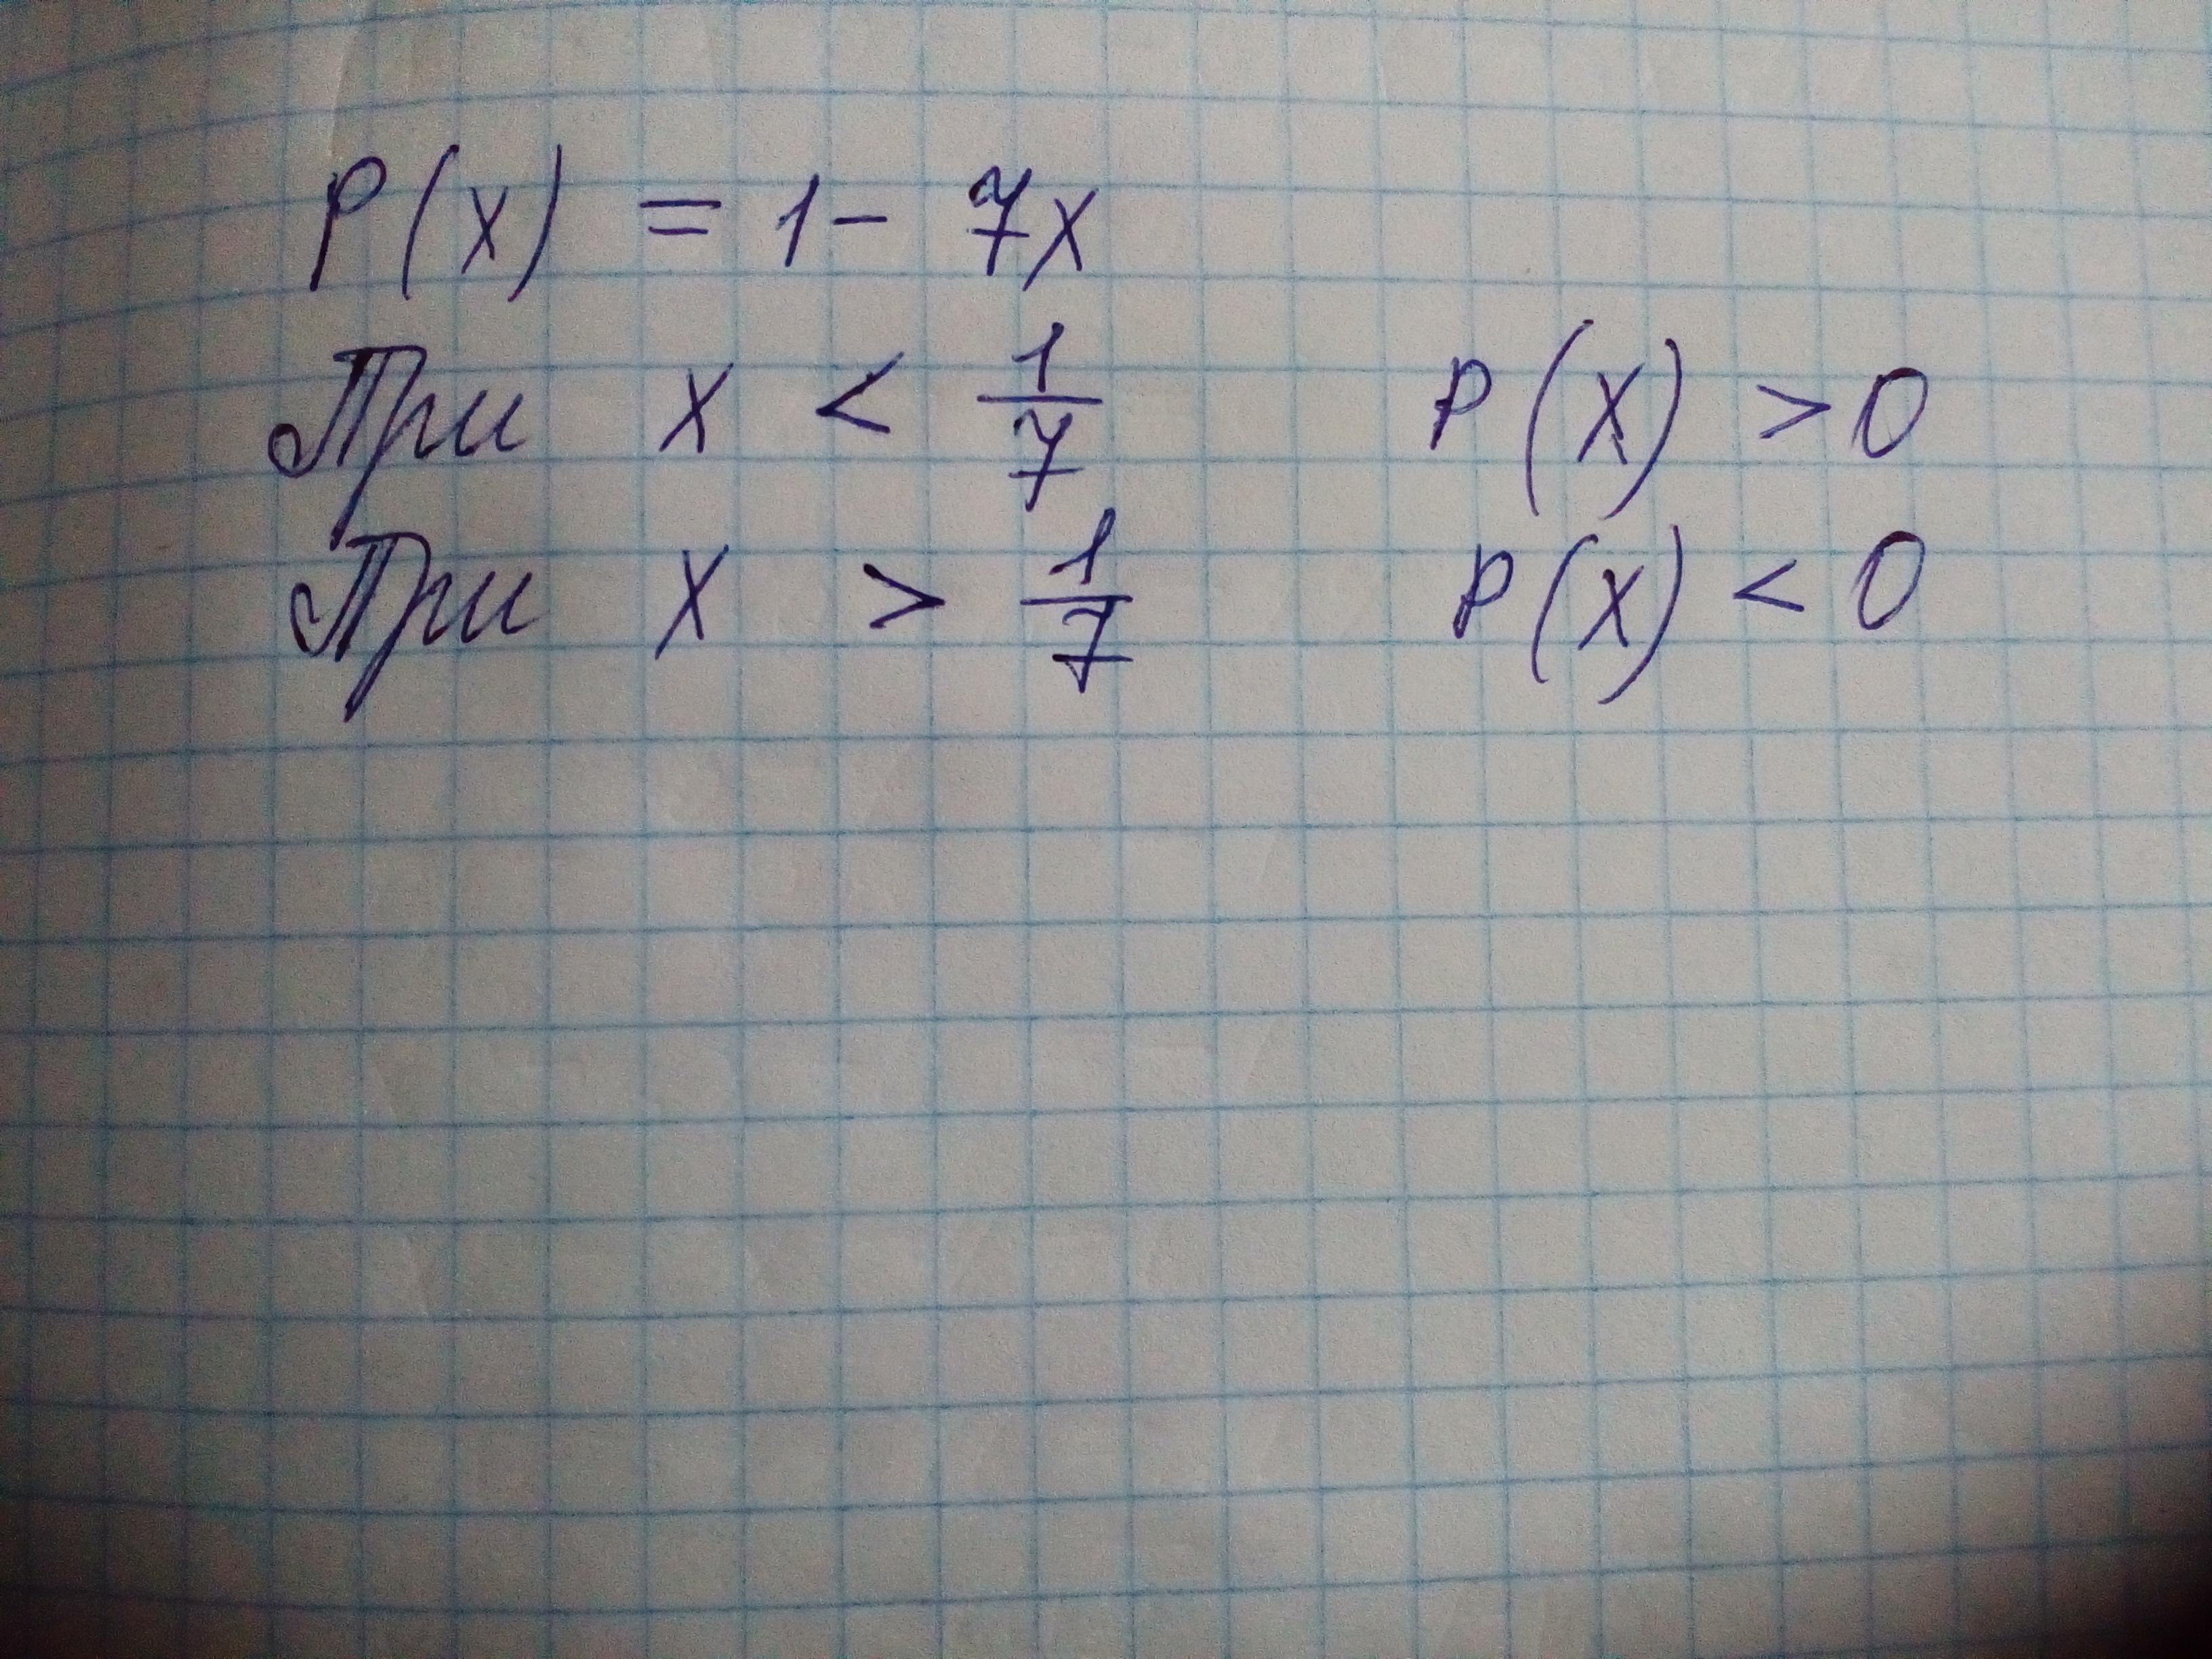 P(x) = 1 - 7x
При x < 1/7 P(x) > 0
При x > 1/7 P(x) < 0